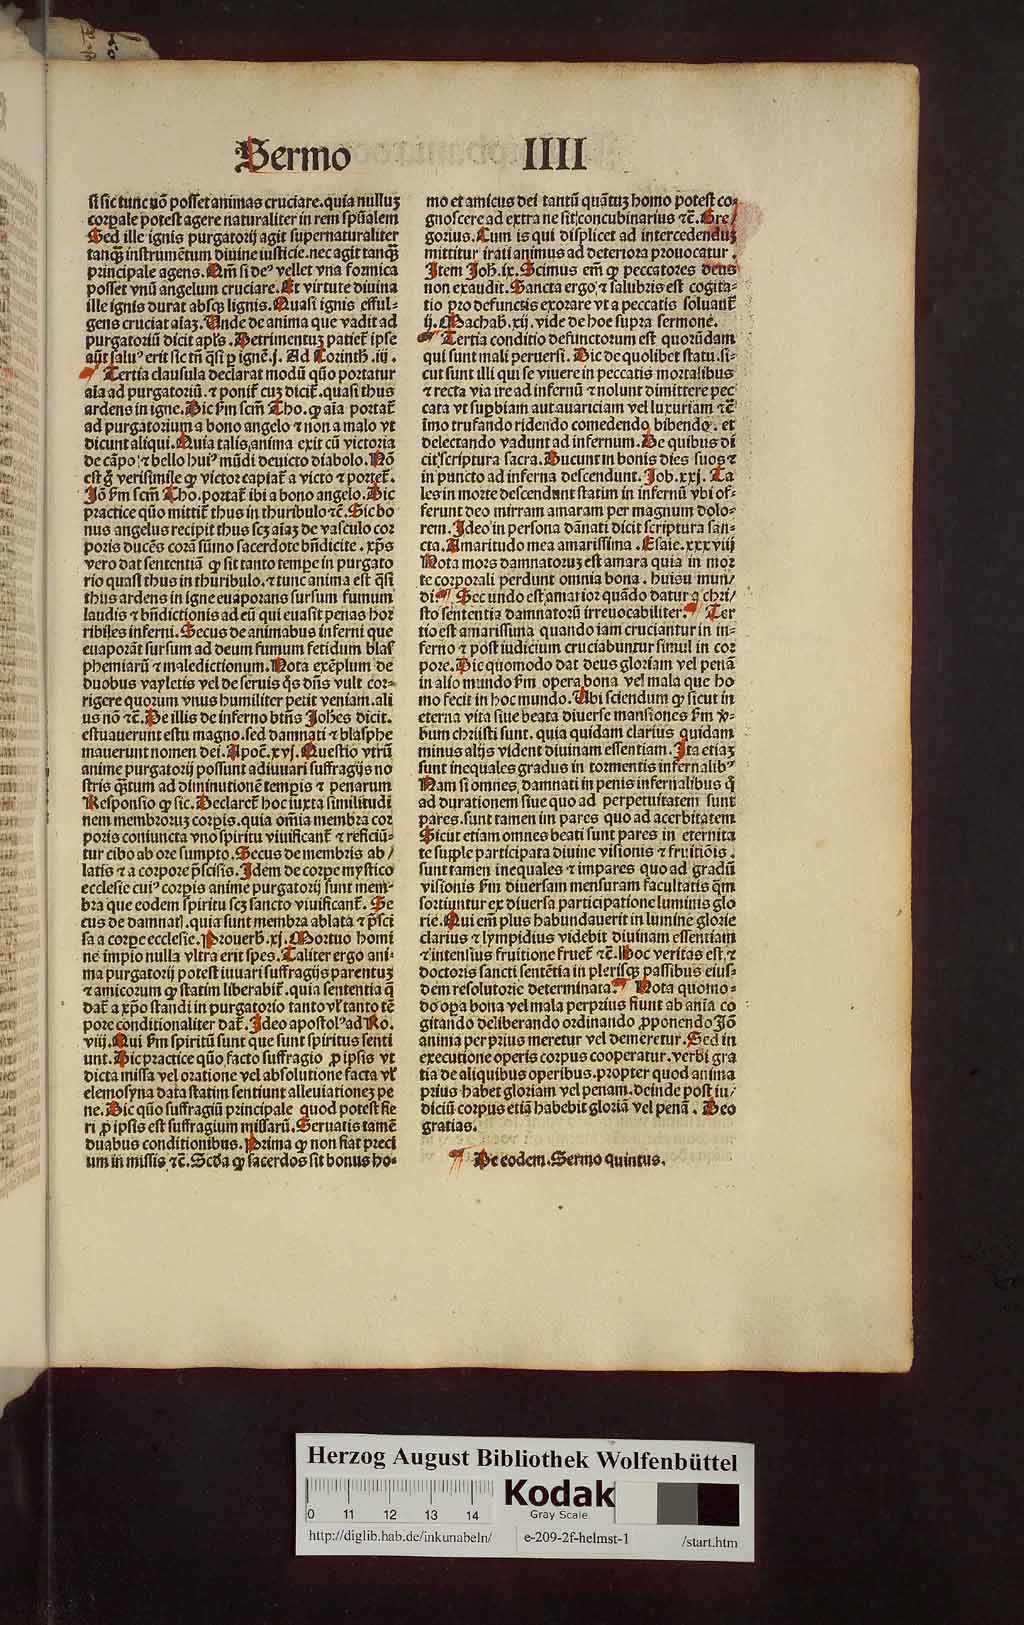 Sermo IIII
si sic tunc nō posset animas cruciare. quia nulluꝫ
corpale potest agere naturaliter in rem spūalem
Sed ille ignis purgatorij agit supernaturaliter
tanqꝫ instrumētum diuine iusticie. nec agit tanqꝫ
principale agens. Qm̄ si deꝰ vellet vna formica
posset vnū angelum cruciare. Et virtute diuina
ille ignis durat absqꝫ lignis. Quasi ignis efful⸗
gens cruciat aīaꝫ. Unde de anima que vadit ad
purgatoriū dicit apl's. Detrimentuꝫ patiet᷑ ipse
aūt saluꝰ erit sic tn̄ q̄si ꝑ ignē. j. Ad Corinth. iij.
Tertia clausula declarat modū quō portatur
aīa ad purgatoriū. ⁊ ponit᷑ cuꝫ dicit᷑. quasi thus
ardens in igne. Dic ẜm scm̄ Tho. ꝙ aīa portat᷑
ad purgatorium a bono angelo ⁊ non a malo vt
dicunt aliqui. Quia talis anima exit cū victoria
de cāpo ⁊ bello huiꝰ mūdi deuicto diabolo. Nō
est g̊ verisimile ꝙ victor capiat᷑ a victo ⁊ portet᷑.
Jō ẜm scm̄ Tho. portat᷑ ibi a bono angelo. Dic
practice quō mittit᷑ thus in thuribulo ⁊c̄. Sic bo
nus angelus recipit thus scꝫ aīaꝫ de vasculo cor
poris ducēs corā sūmo sacerdote bn̄dicite. xp̄s
vero dat sententiā ꝙ sit tanto tempe in purgato
rio quasi thus in thuribulo. ⁊ tunc anima est q̄si
thus ardens in igne euaporans sursum fumum
laudis ⁊ bn̄dictionis ad eū qui euasit penas hor
ribiles inferni. Secus de animabus inferni que
euaporāt sursum ad deum fumum fetidum blas
phemiarū ⁊ maledictionum. Nota exēplum de
duobus vayletis vel de seruis q̄s dn̄s vult cor⸗
rigere quorum vnus humiliter petit veniam. ali
us nō ⁊c̄. De illis de inferno btn̄s Joh̄es dicit.
estuauerunt estu magno. sed damnati ⁊ blasphe
mauerunt nomen dei. Apoc̄. xvj. Questio vtrū
anime purgatorij possunt adiuuari suffragijs no
stris q̄tum ad diminutionē tempis ⁊ penarum
Responsio ꝙ sic. Declaret᷑ hoc iuxta similitudi
nem membroruꝫ corpis. quia om̄ia membra cor
poris coniuncta vno spiritu viuificant᷑ ⁊ reficiū⸗
tur cibo ab ore sumpto. Secus de membris ab/
latis ⁊ a corpore p̄scisis. Idem de corpe mystico
ecclesie cuiꝰ corpis anime purgatorij sunt mem⸗
bra que eodem spiritu scꝫ sancto viuificant᷑. Se
cus de damnat᷑. quia sunt membra ablata ⁊ p̄sci
sa a corpe ecclesie. Prouerb. xj. Mortuo homi
ne impio nulla vltra erit spes. Taliter ergo ani⸗
ma purgatorij potest iuuari suffragijs parentuꝫ
⁊ amicorum ꝙ statim liberabit᷑. quia sententia q̄
dat᷑ a xp̄o standi in purgatorio tanto vl' tanto tē
pore conditionaliter dat᷑. Ideo apostolꝰ ad Ro.
viij. Qui ẜm spiritū sunt que sunt spiritus senti
unt. Dic practice quō facto suffragio ꝓ ipsis vt
dicta missa vel oratione vel absolutione facta vl'
elemosyna data statim sentiunt alleuiationeꝫ pe
ne. Dic quō suffragiū principale quod potest fie
ri ꝓ ipsis est suffragium missarū. Seruatis tamē
duabus conditionibus. Prima ꝙ non fiat preci
um in missis ⁊c̄. Scd̄a ꝙ sacerdos sit bonus ho⸗
mo et amicus dei tantū quātuꝫ homo potest co⸗
gnoscere ad extra ne sit concubinarius ⁊c̄. Gre/
gorius. Cum is qui displicet ad intercedenduꝫ
mittitur irati animus ad deteriora prouocatur.
Item Joh. ix. Scimus em̄ ꝙ peccatores deus
non exaudit. Sancta ergo ⁊ salubris est cogita⸗
tio pro defunctis exorare vt a peccatis soluant᷑
ij. Machab. xij. vide de hoc supra sermone.
Tertia conditio defunctorum est quorūdam
qui sunt mali peruersi. Dic de quolibet statu. si⸗
cut sunt illi qui se viuere in peccatis mortalibus
⁊ recta via ire ad infernū ⁊ nolunt dimittere pec
cata vt supbiam aut auariciam vel luxuriam ⁊c̄
īmo trufando ridendo comedendo bibendo. et
delectando vadunt ad infernum. De quibus di
cit scriptura sacra. Ducunt in bonis dies suos ⁊
in puncto ad inferna descendunt. Job. xxj. Ta
les in morte descendunt statim in infernū vbi of⸗
ferunt deo mirram amaram per magnum dolo⸗
rem. Ideo in persona dānati dicit scriptura san⸗
cta. Amaritudo mea amarissima. Esaie. xxxviij
Nota mors damnatoruꝫ est amara quia in mor
te corporali perdunt omnia bona. huius mun/
di. Secundo est amarior quādo datur a chri/
sto sententia damnatorū irreuocabiliter. Ter
tio est amarissima quando iam cruciantur in in⸗
ferno ⁊ post iudicium cruciabuntur simul in cor
pore. Dic quomodo dat deus gloriam vel penā
in alio mundo ẜm opera bona vel mala que ho
mo fecit in hoc mundo. Ubi sciendum ꝙ sicut in
eterna vita siue beata diuerse mansiones ẜm ꝟ⸗
bum christi sunt. quia quidam clarius quidam
minus alijs vident diuinam essentiam. Ita etiaꝫ
sunt inequales gradus in tormentis infernalibꝰ
Nam si omnes damnati in penis infernalibus q̄
ad durationem siue quo ad perpetuitatem sunt
pares. sunt tamen impares quo ad acerbitatem
Sicut etiam omnes beati sunt pares in eternita
te supple participata diuine visionis ⁊ fruitiōis.
sunt tamen inequales ⁊ impares quo ad gradū
visionis ẜm diuersam mensuram facultatis q̄m
sortiuntur ex diuersa participatione luminis glo
rie. Qui em̄ plus habundauerit in lumine glorie
clarius ⁊ lympidius videbit diuinam essentiam
⁊ intensius fruitione fruet᷑ ⁊c̄. Hoc veritas est. ⁊
doctoris sancti sentētia in plerisqꝫ passibus eius⸗
dem resolutorie determinata. Nota quomo⸗
do opa bona vel mala perprius fiunt ab aīa co
gitando deliberando ordinando ꝓponendo Jō
anima per prius meretur vel demeretur. Sed in
executione operis corpus cooperatur. verbi gra
tia de aliquibus operibus. propter quod anima
prius habet gloriam vel penam. deinde post iu/
diciū corpus etiā habebit gloriā vel penā. Deo
gratias.
De eodem. Sermo quintus.
Herzog August Bibliothek Wolfenbüttel
Kodak
Gray Scale
0 11 12 13 14
http://diglib.hab.de/inkunabeln/ e-209-2f-helmst-1 /start.htm